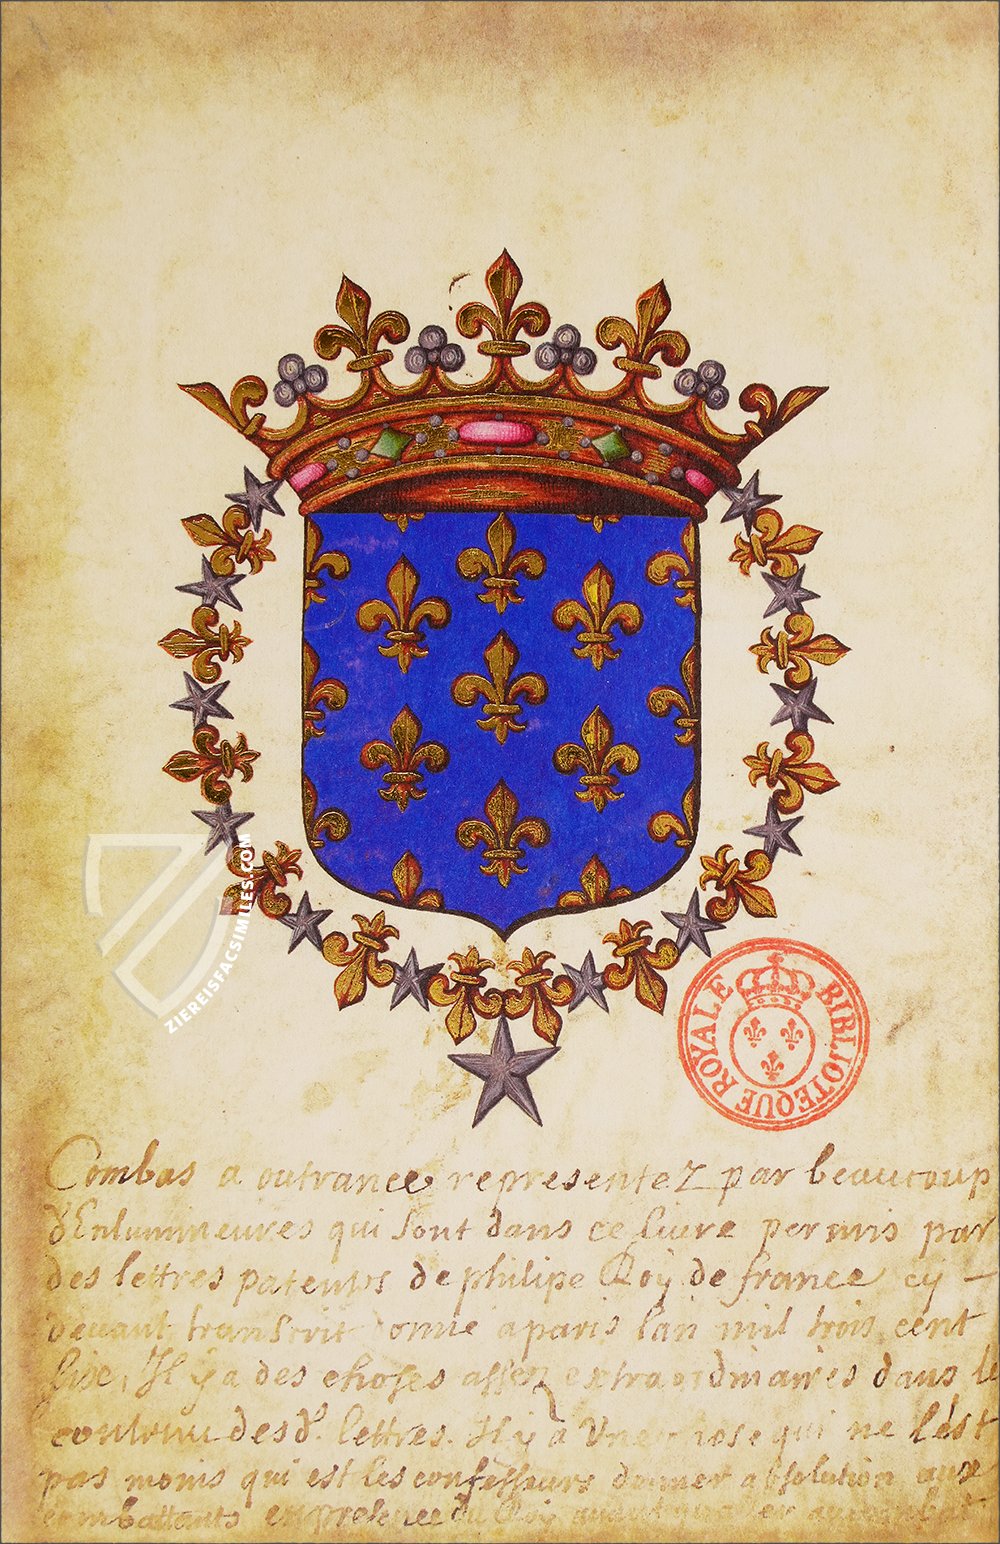 ZIEREISFACSIMILES.COM
BIBLIOTEQUE ROYALE
Combas a outrance representez par beaucoup
d'Enlumineures qui sont dans ce livre permis par
des lettres patentes de philipe Roy de france cy
devant transcrit donne a paris lan mil trois cent
sise, Il y a des choses assez extraordinaires dans le
contenu desd. lettres. Il y a Une chose qui ne l'est
pas moins qui est les confesseurs donner absolution aux
combattants en presence du Roy avant